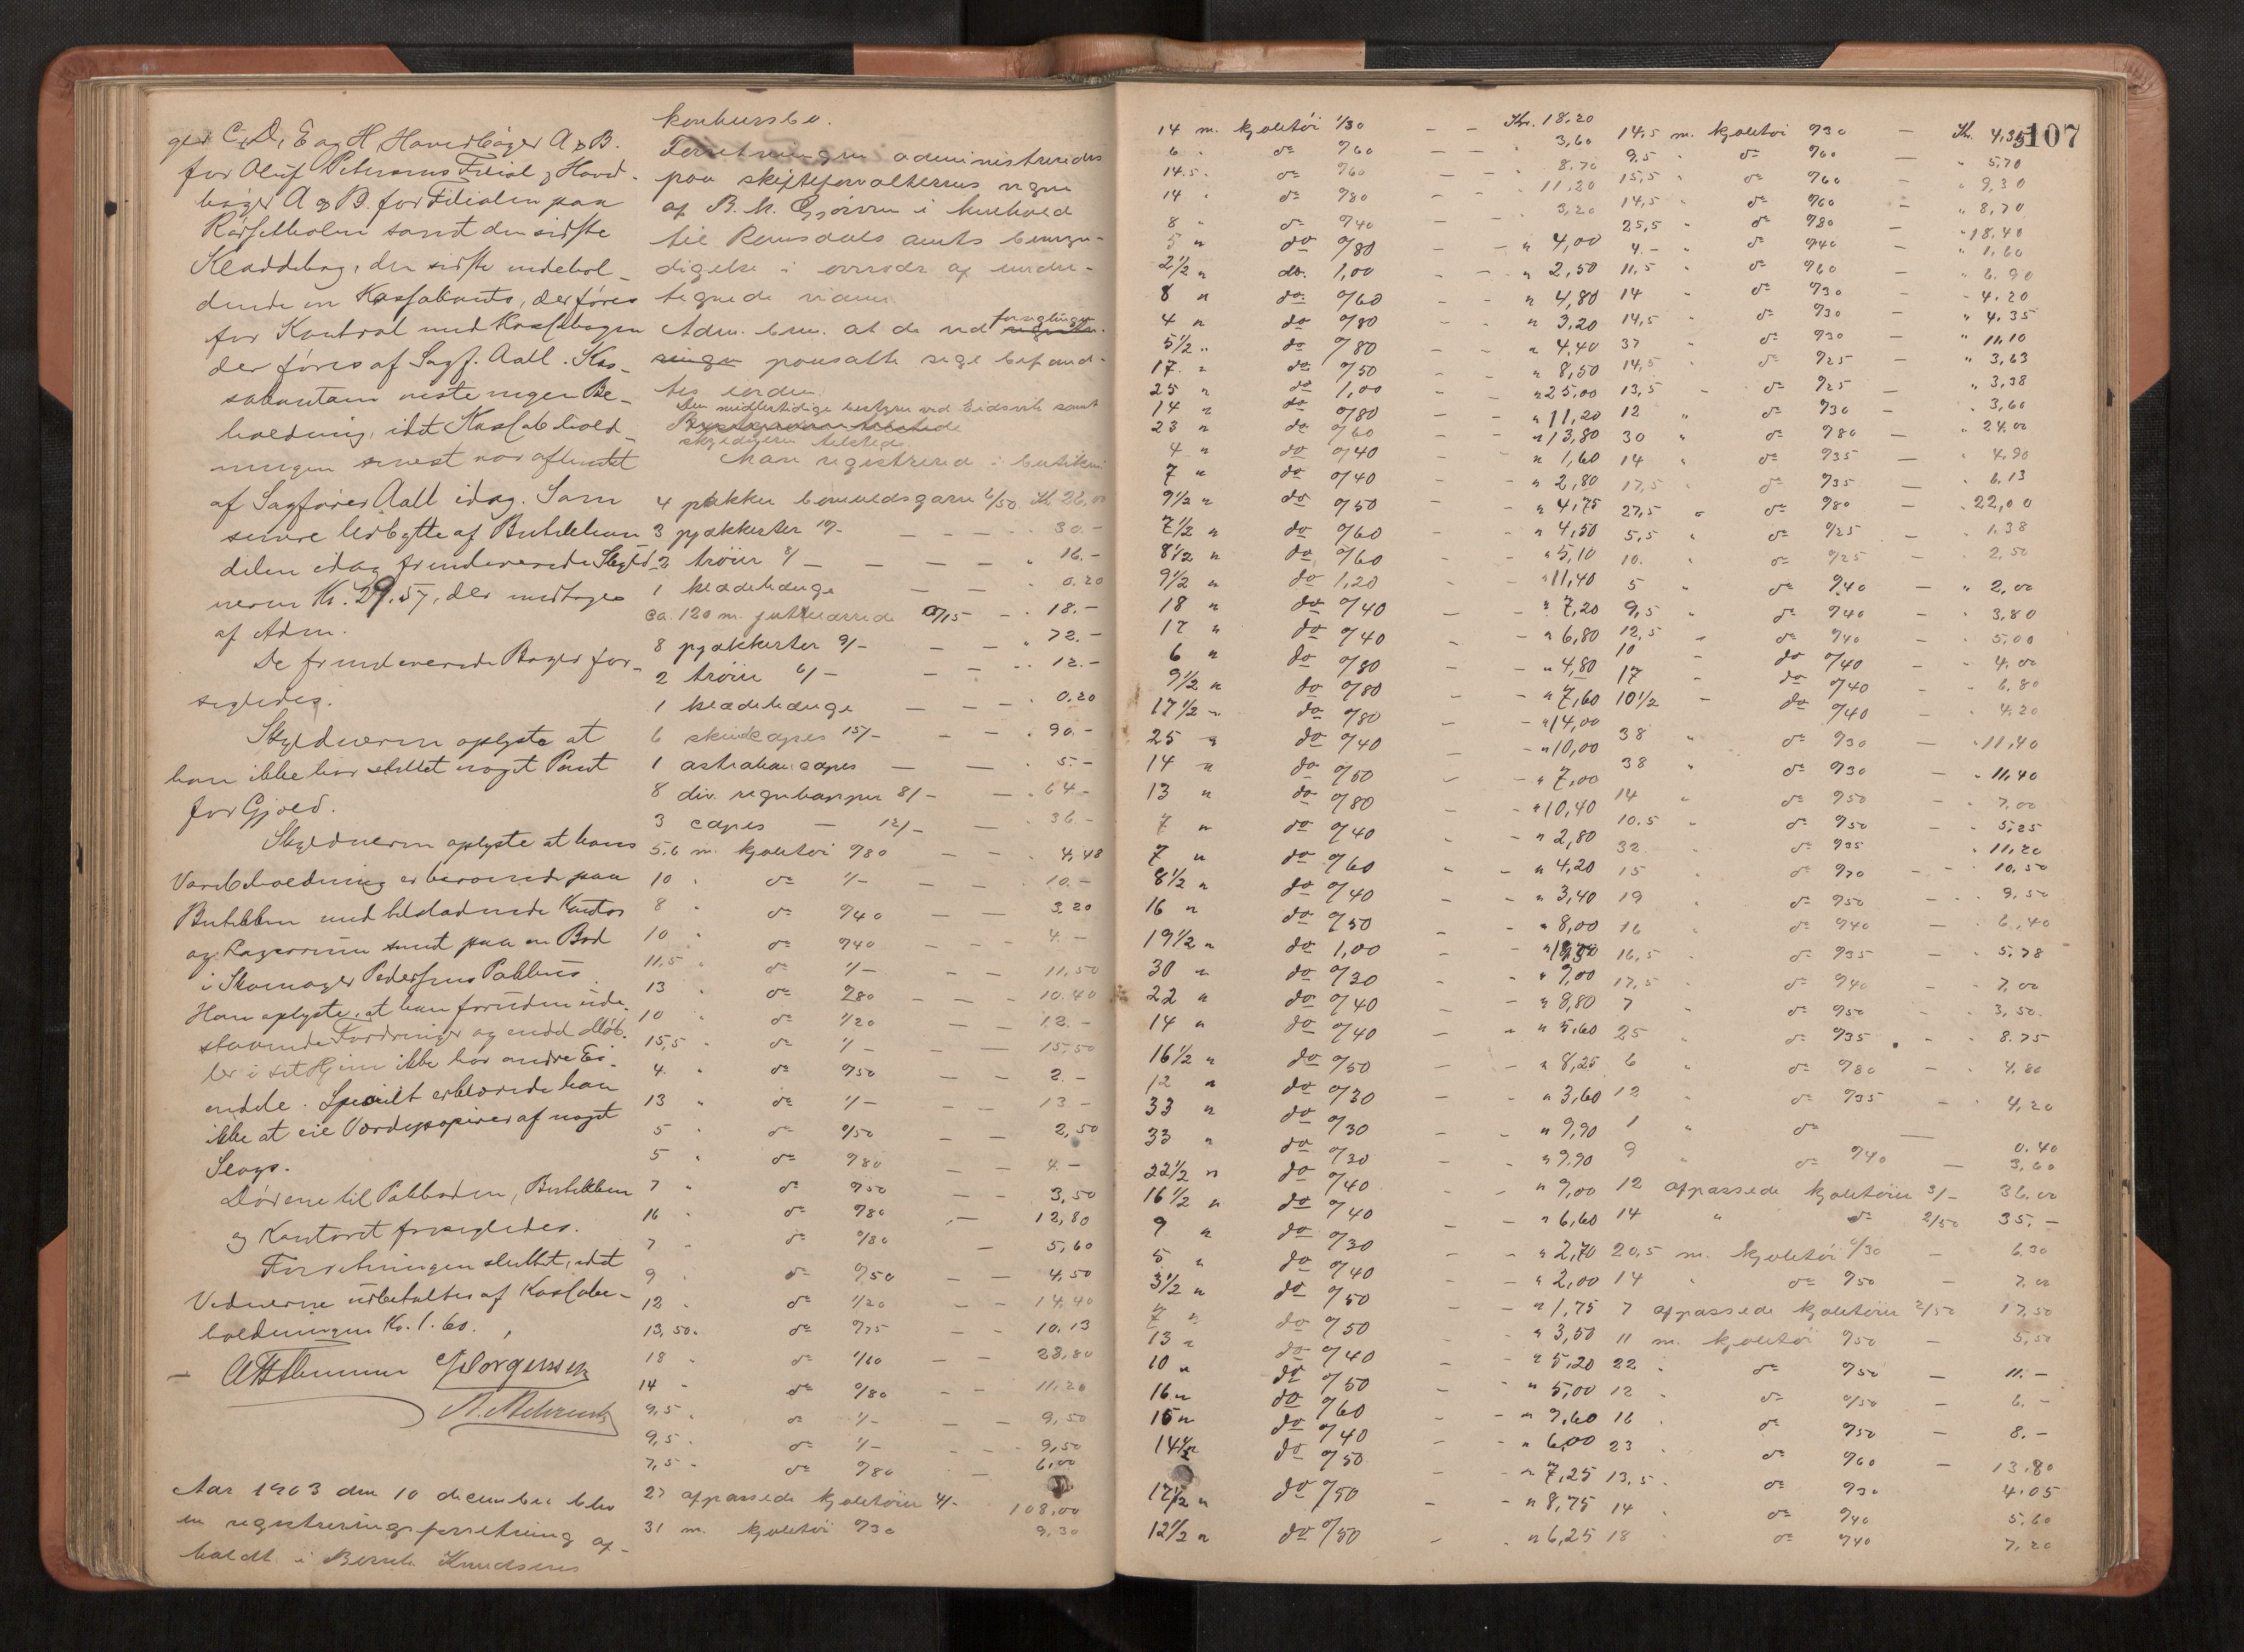 ger C, D, E og H, Hovedbøger A & B.
for Oluf Petersens Filial & Hoved-
bøger A & B. for Filialen paa
samt den sidste
Kladdebog, den sidste indehol-
dende en Kassakonto, der føres
for Kontrol med Kassabogen
der føres af Sagf. Aall. Kas-
sakontoen viste ingen Be-
holdning, idet Kassabehold-
ningen senest var afhentet
af Sagfører Aall idag. Som
senere Udbytte af Butikhan-
delen idag fremleverede Skyld-
neren Kr. 29.57, der modtoges
af Adm.
De fremleverede Bøger for-
segledes.
Skyldneren oplyste at
han ikke har stillet noget Pant
for Gjæld.
Skyldneren oplyste at hans
Varebeholdning er beroende paa
Butikken med tilstødende Kontor
og Lagerrum samt paa en Bod
i Skomager Pedersens Pakhus.
Han oplyste, at han foruden ude-
staaende Fordringer og endel Møb-
ler i sit Hjem ikke har andre Ei-
endele. Specielt erklærede han
ikke at eie Værdipapirer af noget
Slags.
Dørene til Pakboden, Butikken
og Kontoret forsegledes.
Forretningen sluttet, idet
Vidnerne udbetaltes af Kassabe-
holdningen Kr. 1.60.
Jørgensen
Aar 1903 den 10 december blev
en registreringsforretning af-
holdt i Bernh. Knudsens
konkursbo.
Forretningen administreredes
paa skifteforvalterens vegne
af B. K. i henhold
til Romsdals amts bemyn-
digelse i overvær af under-
tegnede vidner.
Adm. bem. at de ved forseglingen
paasatte segl befand-
tes i orden.
Den midlertidige bestyrer ved Eidsvik samt
skyldneren tilstede.
Man registrerede i butikken:
4 pakker bomuldsgarn 6/50 Kr. 26,00
3 pjækkerter 10/- — 30.-
2 trøier 8/- — 16.-
1 klædehænge — 0.20
ca. 120 m. 0/15 — 18.-
8 pjækkerter 9/- — 72.-
2 trøier 6/- — 12.-
1 klædehænge — 0,20
6 skindcapes 15/- — 90.-
1 astrakan capes — 5.-
8 div. regnkapper 8/- — 64-
3 capes — 12/- — 36-
5.6 m. kjoletøi 0/80 — 4,48
10 " do 1/- — 10.-
8 " do 0/40 — 3.20
10 " do 0/40 — 4.-
11,5 " do 1/- — 11,50
13 " do 0/80 — 10.40
10 " do 1/20 — 12.-
15,5 " do 1/- — 15,50
4 " do 0/50 — 2.-
13 " do 1/- — 13-
5 " do 0/50 — 2,50
5 " do 0/80 — 4-
7 " do 0/50 — 3,50
16 " do 0/80 — 12,80
7 " do 0/80 — 5,60
9 " do 0/50 — 4,50
12 " do 1/20 — 14,40
13,50 " do 0/75 — 10.13
18 " do 1/60 — 28,80
14 " do 0/80 — 11,20
9,5 " do 1/- — 9,50
9,5 " do 1/- — 9,50
7,5 " do 0/80 — 6,00
27 afpassede kjoletøier 4/- 108,00
31 m. kjoletøi 0/30 9,30
107
14 m. kjoletøi 1/30 — Kr. 18.20
6 " do 0/60 — " 3,60
14.5 " do 0/60 — " 8.70
14 " do 0/80 — " 11,20
8 " do 0/40 — 3,20
5 " do 0/80 — " 4,00
2 1/2 " do. 1,00 — " 2,50
8 " do 0/60 — " 4,80
4 " do 0/80 — " 3,20
5 1/2 " do 0/80 — " 4,40
17 " do 0/50 — " 8,50
25 " do 1,00 — " 25,00
14 " do 0/80 — " 11,20
23 " do 0/60 — " 13,80
4 " do 0/40 — " 1,60
7 " do 0/40 — " 2,80
9 1/2 " do 0/50 — " 4,75
7 1/2 " do 0/60 — " 4,50
8 1/2 " do 0/60 — " 5,10
9 1/2 " do 1,20 — " 11,40
18 " do 0/40 — " 7,20
17 " do 0/40 — " 6,80
6 " do 0/80 — " 4,80
9 1/2 " do 0/80 — " 7,60
17 1/2 " do 0/80 — " 14,00
25 " do 0/40 — " 10,00
14 " do 0/50 — " 7,00
13 " do 0/80 — " 10,40
7 " do 0/40 — " 2,80
7 " do 0/60 — " 4,20
8 1/2 " do 0/40 — " 3,40
16 " do 0/50 — " 8,00
19 1/2 " do 1,00 — " 19,50
30 " do 0/30 — " 9,00
22 " do 0/40 — " 8,80
14 " do 0/40 — " 5,60
16 1/2 " do 0/50 — " 8,25
12 " do 0/30 — " 3,60
33 " do 0/30 — " 9,90
33 " do 0/30 — " 9,90
22 1/2 " do 0/40 — " 9,00
16 1/2 " do 0/40 — " 6,60
9 " do 0/30 — " 2,70
5 " do 0/40 — " 2,00
3 1/2 " do 0/50 — " 1,75
7 " do 0/50 — " 3,50
13 " do 0/40 — " 5,20
10 " do 0/50 — " 5,00
16 " do 0/60 — " 9,60
15 " do 0/40 — " 6,00
14 1/2 do 0/50 — " 7,25
17 1/2 " do 0/50 — " 8,75
12 1/2 " do 0/50 — " 6,25
14,5 m. kjoletøi 0/30 — Kr. 4,35
9,5 " do 0/60 — " 5,70
15,5 " do 0/60 — " 9,30
14,5 " do 0/60 — " 8,70
25,5 " do 0/80 — " 18,40
4.- " do 0/40 — " 1,60
11,5 " do 0/60 — " 6.90
14 " do 0/30 — " 4.20
14,5 " do 0/30 — " 4.35
37 " do 0/30 — " 11,10
14,5 " do 0/25 — " 3,63
13,5 " do 0/25 — " 3,38
12 " do 0/30 — " 3,60
30 " do 0/80 — " 24.00
14 " do 0/35 — " 4,90
17,5 " do 0/35 — " 6.13
27,5 " do 0/80 — " 22,00
5,5 " do 0/25 — " 1.38
10. " do 0/25 — " 2,50
5 " do 0/40 — " 2,00
9,5 " do 0/40 — " 3,80
12,5 " do 0/40 — " 5,00
10 " do 0/40 — " 4,00
17 " do 0/40 — " 6,80
10 1/2 " do 0/40 — " 4,20
38 " do 0/30 — " 11,40
38 " do 0/30 — " 11,40
14 " do 0/50 — " 7,00
10.5 " do 0/50 — " 5,25
32 " do 0/35 — " 11,20
15 " do 0/70 — " 10,50
19 " do 0/50 — " 9,50
16 " do 0/40 — " 6,40
16,5 " do 0/35 — " 5.78
17,5 " do 0/40 — " 7,00
7 " do 0/50 — " 3,50
25 " do 0/35 — " 8.75
6 " do 0/80 — " 4,80
12 " do 0/35 — " 4,20
1 " do — 0.40
9 " do 0/40 — 3,60
12 afpassede kjoletøier 3/- 36,00
14 " do 2/50 35,-
20,5 m. kjoletøi 0/30 — 6.30
14 " do 0/50 — 7,00
7 afpassede kjoletøier 2/50 17,50
11 m. kjoletøi 0/50 — 5,50
22 " do 0/50 — 11.-
12 " do 0/50 — 6.-
16 " do 0/50 — 8.-
23 " do 0/60 — 13,80
13,5 " do 0/30 4.05
14 " do 0/40 5,60
18 " do 0/40 7,20